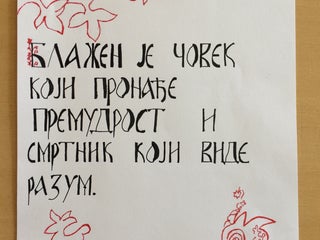 Блажен је човек
који пронађе
премудрост и
смртник који виде
разум.